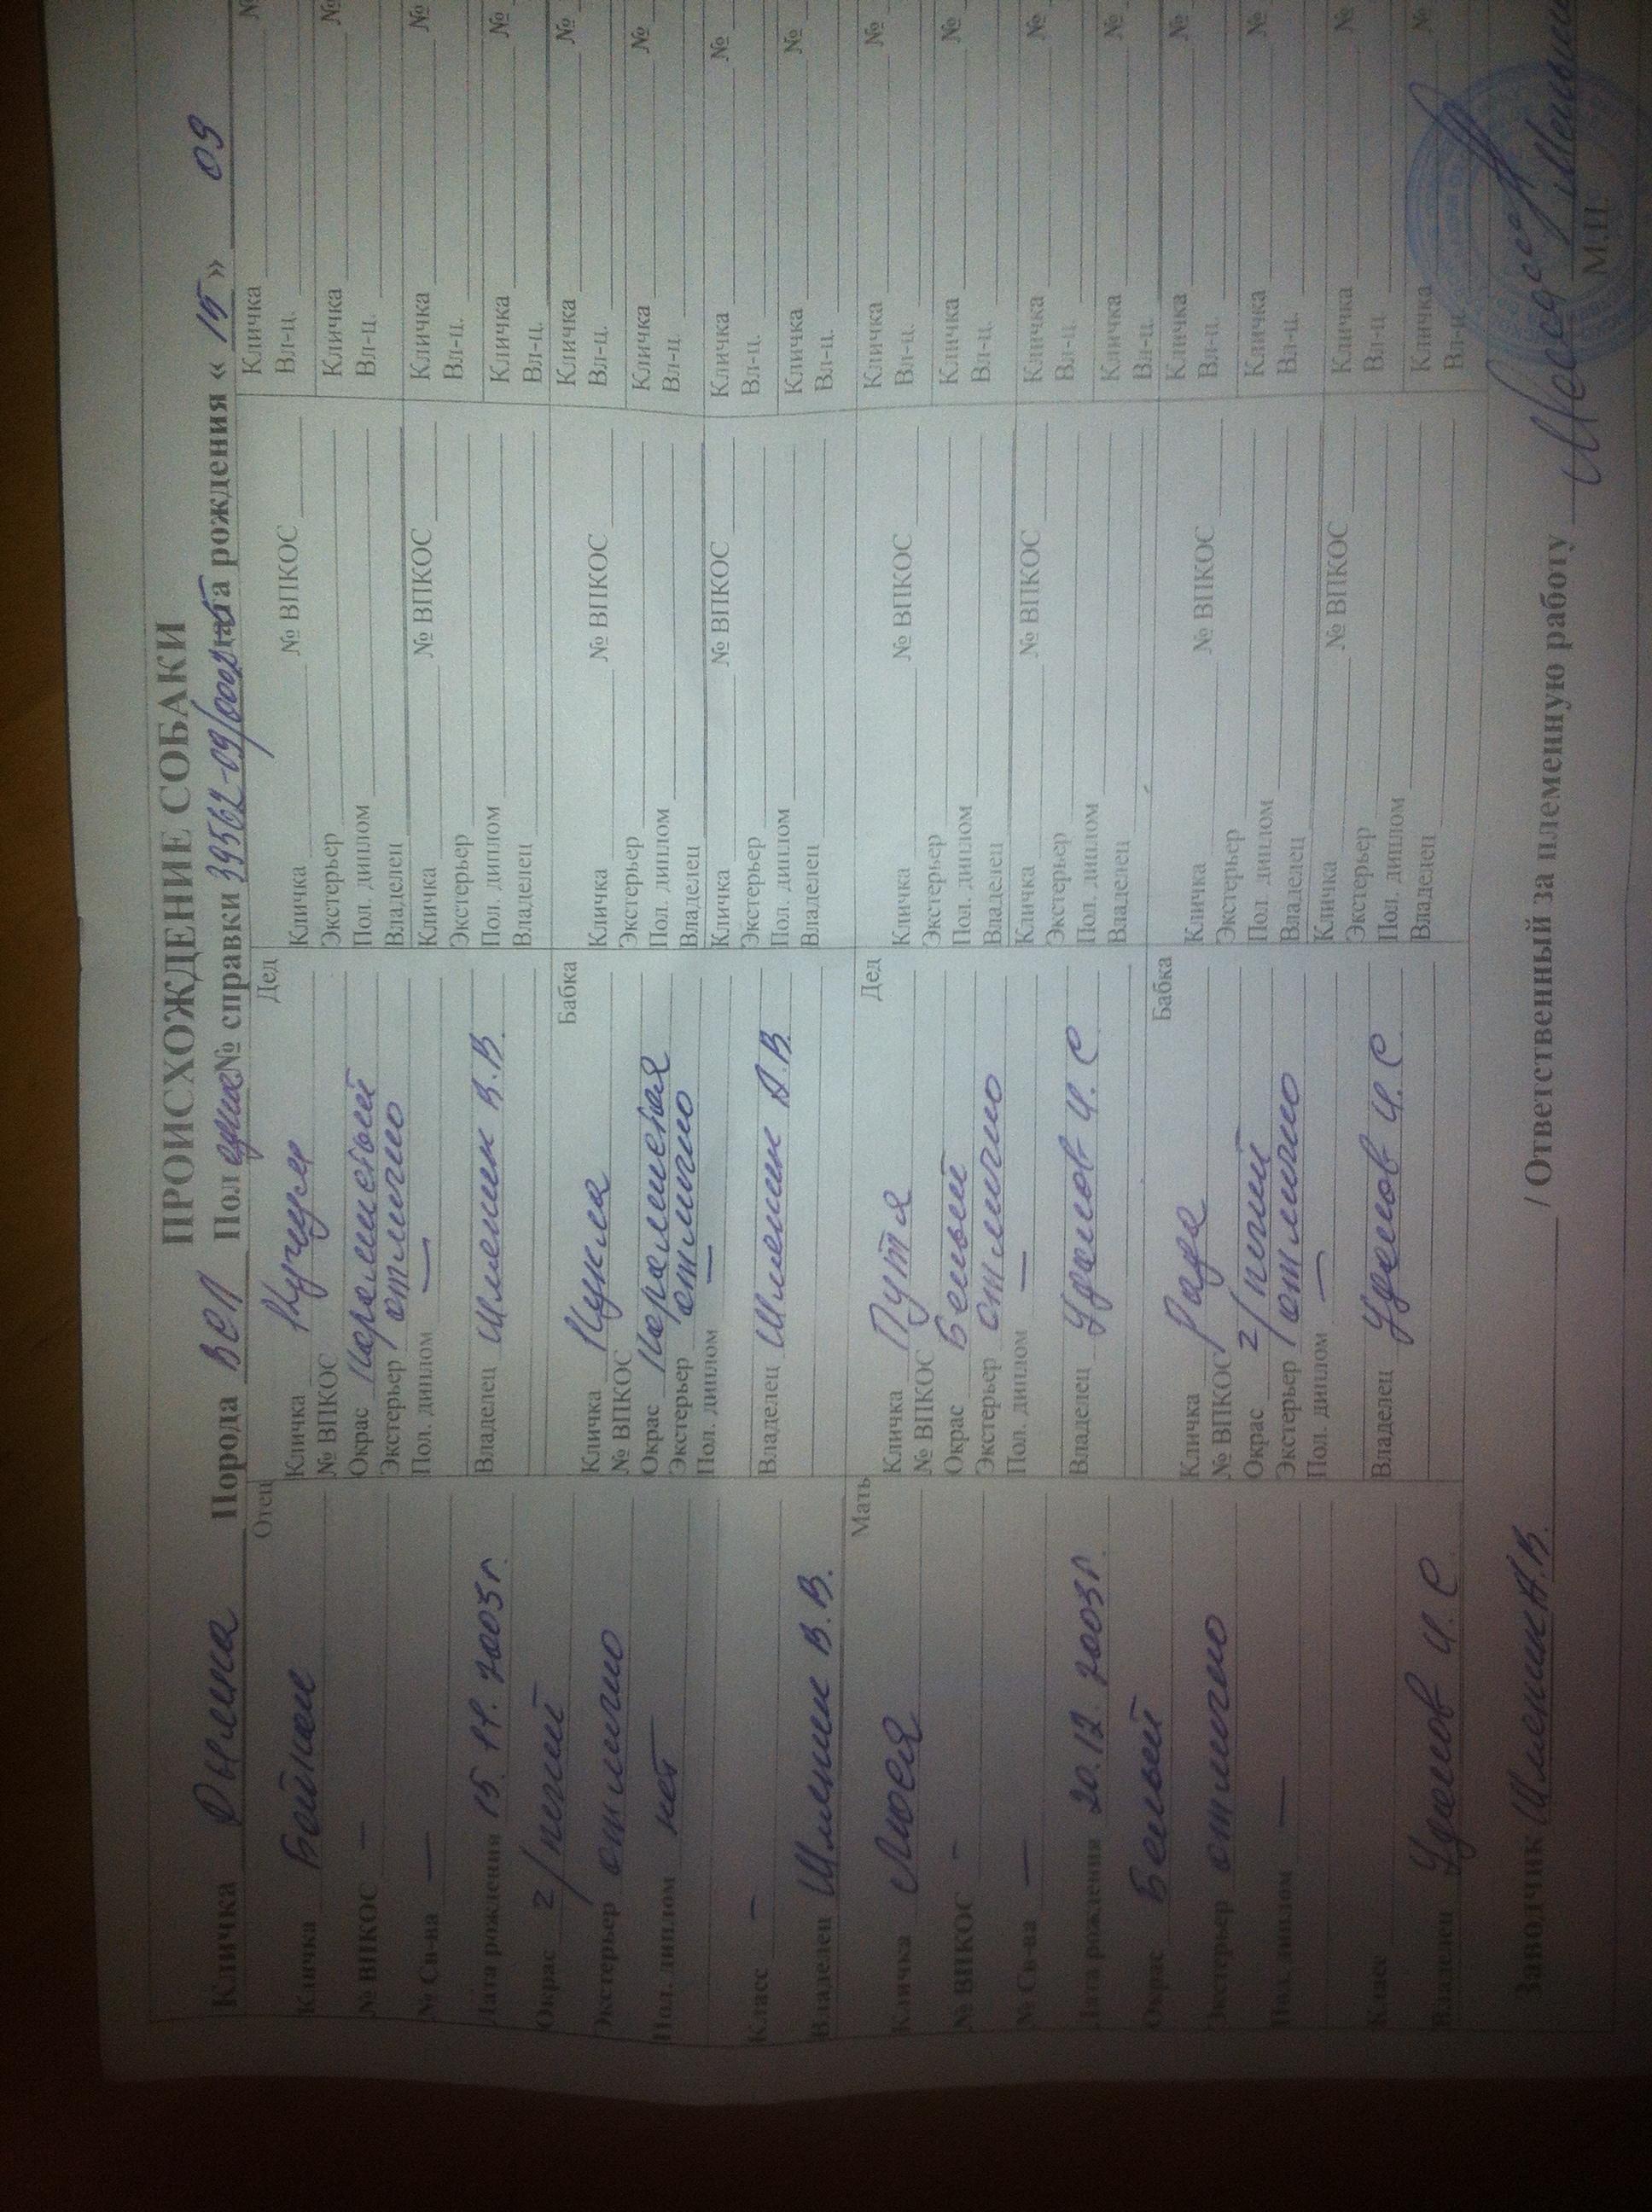 ПРОИСХОЖДЕНИЕ СОБАКИ
Кличка Дымка Порода ВСЛ Пол № справки рождения « 15 » 09
Отец
Кличка Байкал
№ ВПКОС —
№ Св-ва —
Дата рождения 15. 11. 2003г.
Окрас з/пегий
Экстерьер отлично
Пол. диплом нет
Класс —
Владелец Шленик В.В.
Мать
Кличка Люся
№ ВПКОС -
№ Св-ва —
Дата рождения 20.12.2003г.
Окрас Белый
Экстерьер отлично
Пол. диплом —
Класс
Владелец И. С
Дед
Кличка Кучум
№ ВПКОС
Окрас
Экстерьер отлично
Пол. диплом —
Владелец Шленик В.В.
Бабка
Кличка Кукла
№ ВПКОС
Окрас
Экстерьер отлично
Пол. диплом —
Владелец Шленик А.В.
Дед
Кличка Путя
№ ВПКОС
Окрас Белый
Экстерьер отлично
Пол. диплом —
Владелец И. С
Бабка
Кличка Рада
№ ВПКОС
Окрас з/пегий
Экстерьер отлично
Пол. диплом —
Владелец И. С
Кличка № ВПКОС
Экстерьер
Пол. диплом
Владелец
Кличка № ВПКОС
Экстерьер
Пол. диплом
Владелец
Кличка № ВПКОС
Экстерьер
Пол. диплом
Владелец
Кличка № ВПКОС
Экстерьер
Пол. диплом
Владелец
Кличка № ВПКОС
Экстерьер
Пол. диплом
Владелец
Кличка № ВПКОС
Экстерьер
Пол. диплом
Владелец
Кличка № ВПКОС
Экстерьер
Пол. диплом
Владелец
Кличка № ВПКОС
Экстерьер
Пол. диплом
Владелец
Кличка №
Вл-ц.
Кличка №
Вл-ц.
Кличка №
Вл-ц.
Кличка №
Вл-ц.
Кличка №
Вл-ц.
Кличка №
Вл-ц
Кличка №
Вл-ц.
Кличка №
Вл-ц.
Кличка №
Вл-ц.
Кличка №
Вл-ц.
Кличка №
Вл-ц.
Кличка №
Вл-ц.
Кличка №
Вл-ц
Кличка №
Вл-ц.
Кличка №
Вл-ц
Кличка №
Вл-ц
Заводчик Шленик А.В. / Ответственный за племенную работу
М.П.